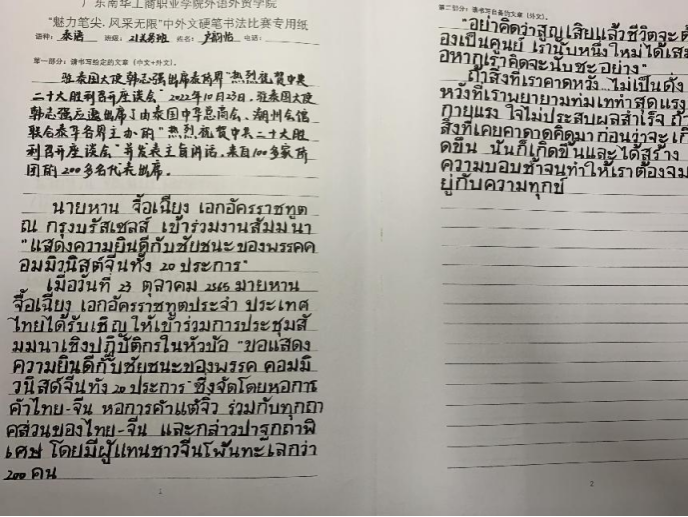 广东南华工商职业学院外语外贸学院
“魅力笔尖、风采无限”中外文硬笔书法比赛专用纸
语种: 泰语 班级: 姓名: 电话:
第一部分: 请书写给定的文章 (中文+外文).
驻泰国大使韩志强出席泰侨界“热烈祝贺中共
二十大胜利召开座谈会” 2022年10月23日, 驻泰国大使
韩志强应邀出席了由泰国中华总商会、潮州会馆
联合泰华各界主办的“热烈祝贺中共二十大胜
利召开座谈会”并发表主旨讲话, 来自100多家侨
团的200多名代表出席。
นายหาน จื้อเฉียง เอกอัครราชทูต
ณ กรุงบรัสเซลส์ เข้าร่วมงานสัมมนา
"แสดงความยินดีกับชัยชนะของพรรคค
อมมิวนิสต์จีนทั้ง 20 ประการ"
เมื่อวันที่ 23 ตุลาคม 2565 นายหาน
จื้อเฉียง เอกอัครราชทูตประจำ ประเทศ
ไทยได้รับเชิญให้เข้าร่วมการประชุมสั
มมนาเชิงปฏิบัติการในหัวข้อ "ขอแสดง
ความยินดีกับชัยชนะของพรรค คอมมิ
วนิสต์จีนทั้ง 20 ประการ" ซึ่งจัดโดยหอการ
ค้าไทย-จีน หอการค้าแต้จิ๋ว ร่วมกับทุกภา
คส่วนของไทย-จีน และกล่าวปาฐกถาพิ
เศษ โดยมีผู้แทนชาวจีนโพ้นทะเลกว่า
200 คน
1
第二部分: 请书写自备的文章 (外文).
"อย่าคิดว่าสูญเสียแล้วชีวิตจะต้
องเป็นศูนย์ เรานับหนึ่งใหม่ได้เสม
อหากเราคิดจะนับซะอย่าง"
ถ้าสิ่งที่เราคาดหวัง ไม่เป็นดั่ง
หวังที่เราพยายามทุ่มเททำสุดแรง
กายแรง ใจไม่ประสบผลสำเร็จ ถ้า
สิ่งที่เคยคาดคิดมาก่อนว่าจะเกิ
ดขึ้น นั้นก็เกิดขึ้นและได้สร้าง
ความบอบช้ำจนทำให้เราต้องจม
ยู่กับความทุกข์
2